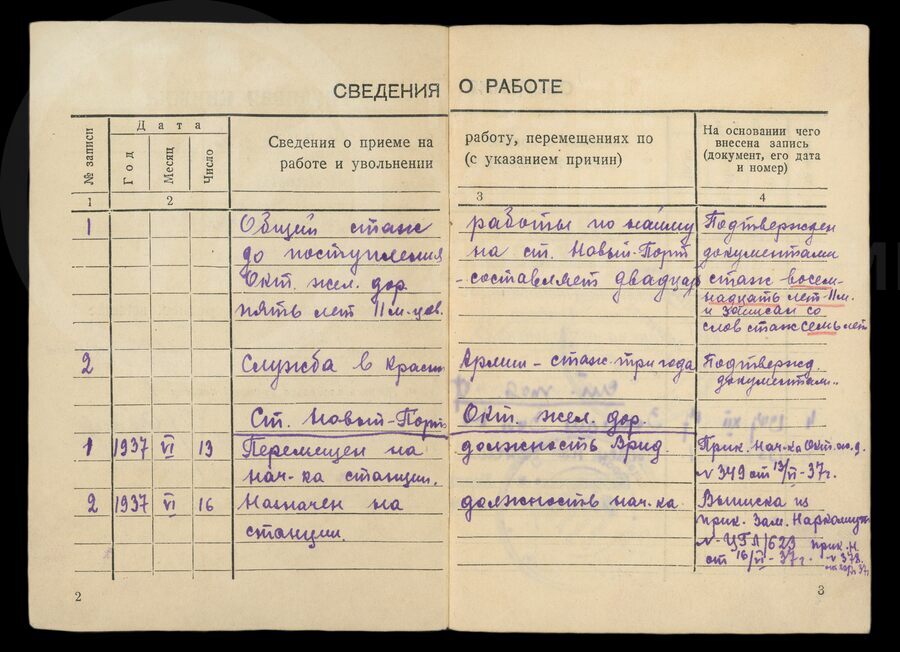 СВЕДЕНИЯ О РАБОТЕ
№ записи
Дата
Год
Месяц
Число
Сведения о приеме на работу, перемещениях по
работе и увольнении (с указанием причин)
На основании чего
внесена запись
(документ, его дата
и номер)
1 2 3 4
1 Общий стаж работы по найму Подтвержден
до поступления на ст. Новый-Порт документами
Окт. жел. дор. - составляет двадцать стаж восем-
пять лет 11 м-цев. надцать лет 11 м.
и записан со
слов стаж семь лет
2 Служба в Красн. Армии - стаж три года Подтвержд.
документам.
Ст. Новый-Порт Окт. жел. дор.
1 1937 VI 13 Перемещен на должность Врид. Прик. нач-ка Окт. ж. д.
нач-ка станции. № 349 от 13/VI-37г.
2 1937 VI 16 Назначен на должность нач-ка. Выписка из
станции. прик. Зам. Наркомпути
№ ЦГЛ/623 прик. Н.
от 16/VI-37г. № 378.
2 3